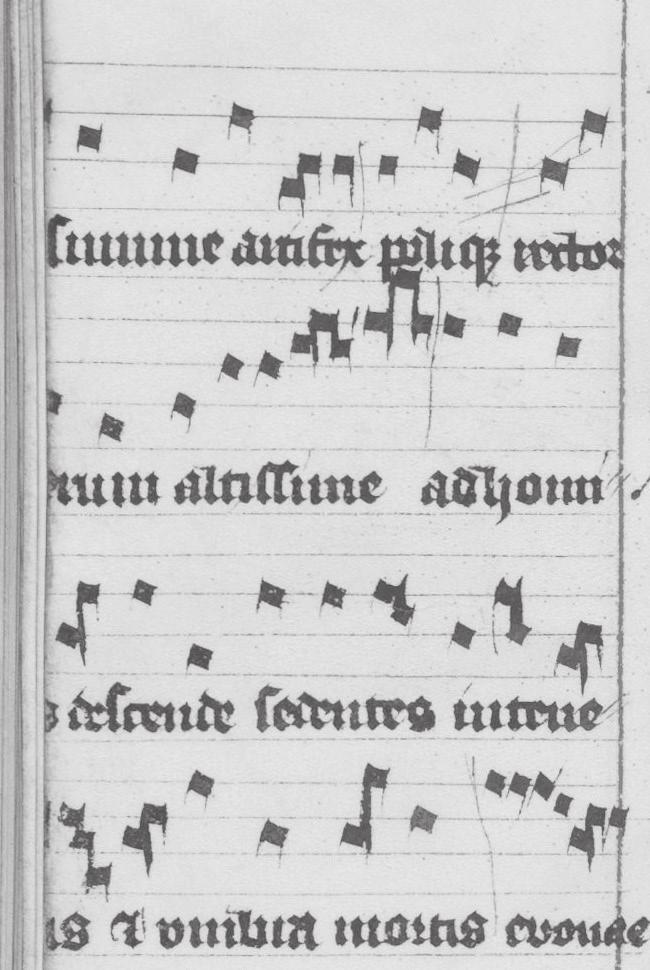 summe artifex poliq; rector
erum altissime ad homi
s descende sedentes in tene
is & vmbra mortis evouae